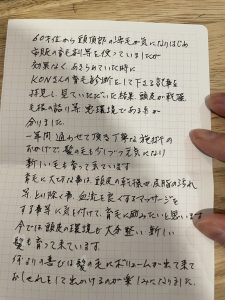 60才位から頭頂部の薄毛が気になりはじめ
市販の育毛剤等を使っていましたが
効果なく、あきらめていた時に
KONさんの育毛診断をして下さる記事を
拝見し 見ていただいた結果 頭皮が乾燥
毛根の詰り等 悪環境である事が
分りました。
一年間 通わせて頂き丁寧な施術の
おかげで 髪の毛も少しづつ元気になり
新しい毛も育って来ています
育毛に大切な事は 頭皮の乾燥や皮脂の汚れ
等 取り除く事 血流を良くするマッサージを
する事等に気を付けて、育毛に励みたいと思います
今では頭皮の環境も大分整い 新しい
髪も育って来ています。
何よりの喜びは 髪の毛にボリュームが出て来て
おしゃれをして出かけるのが楽しみになりました。